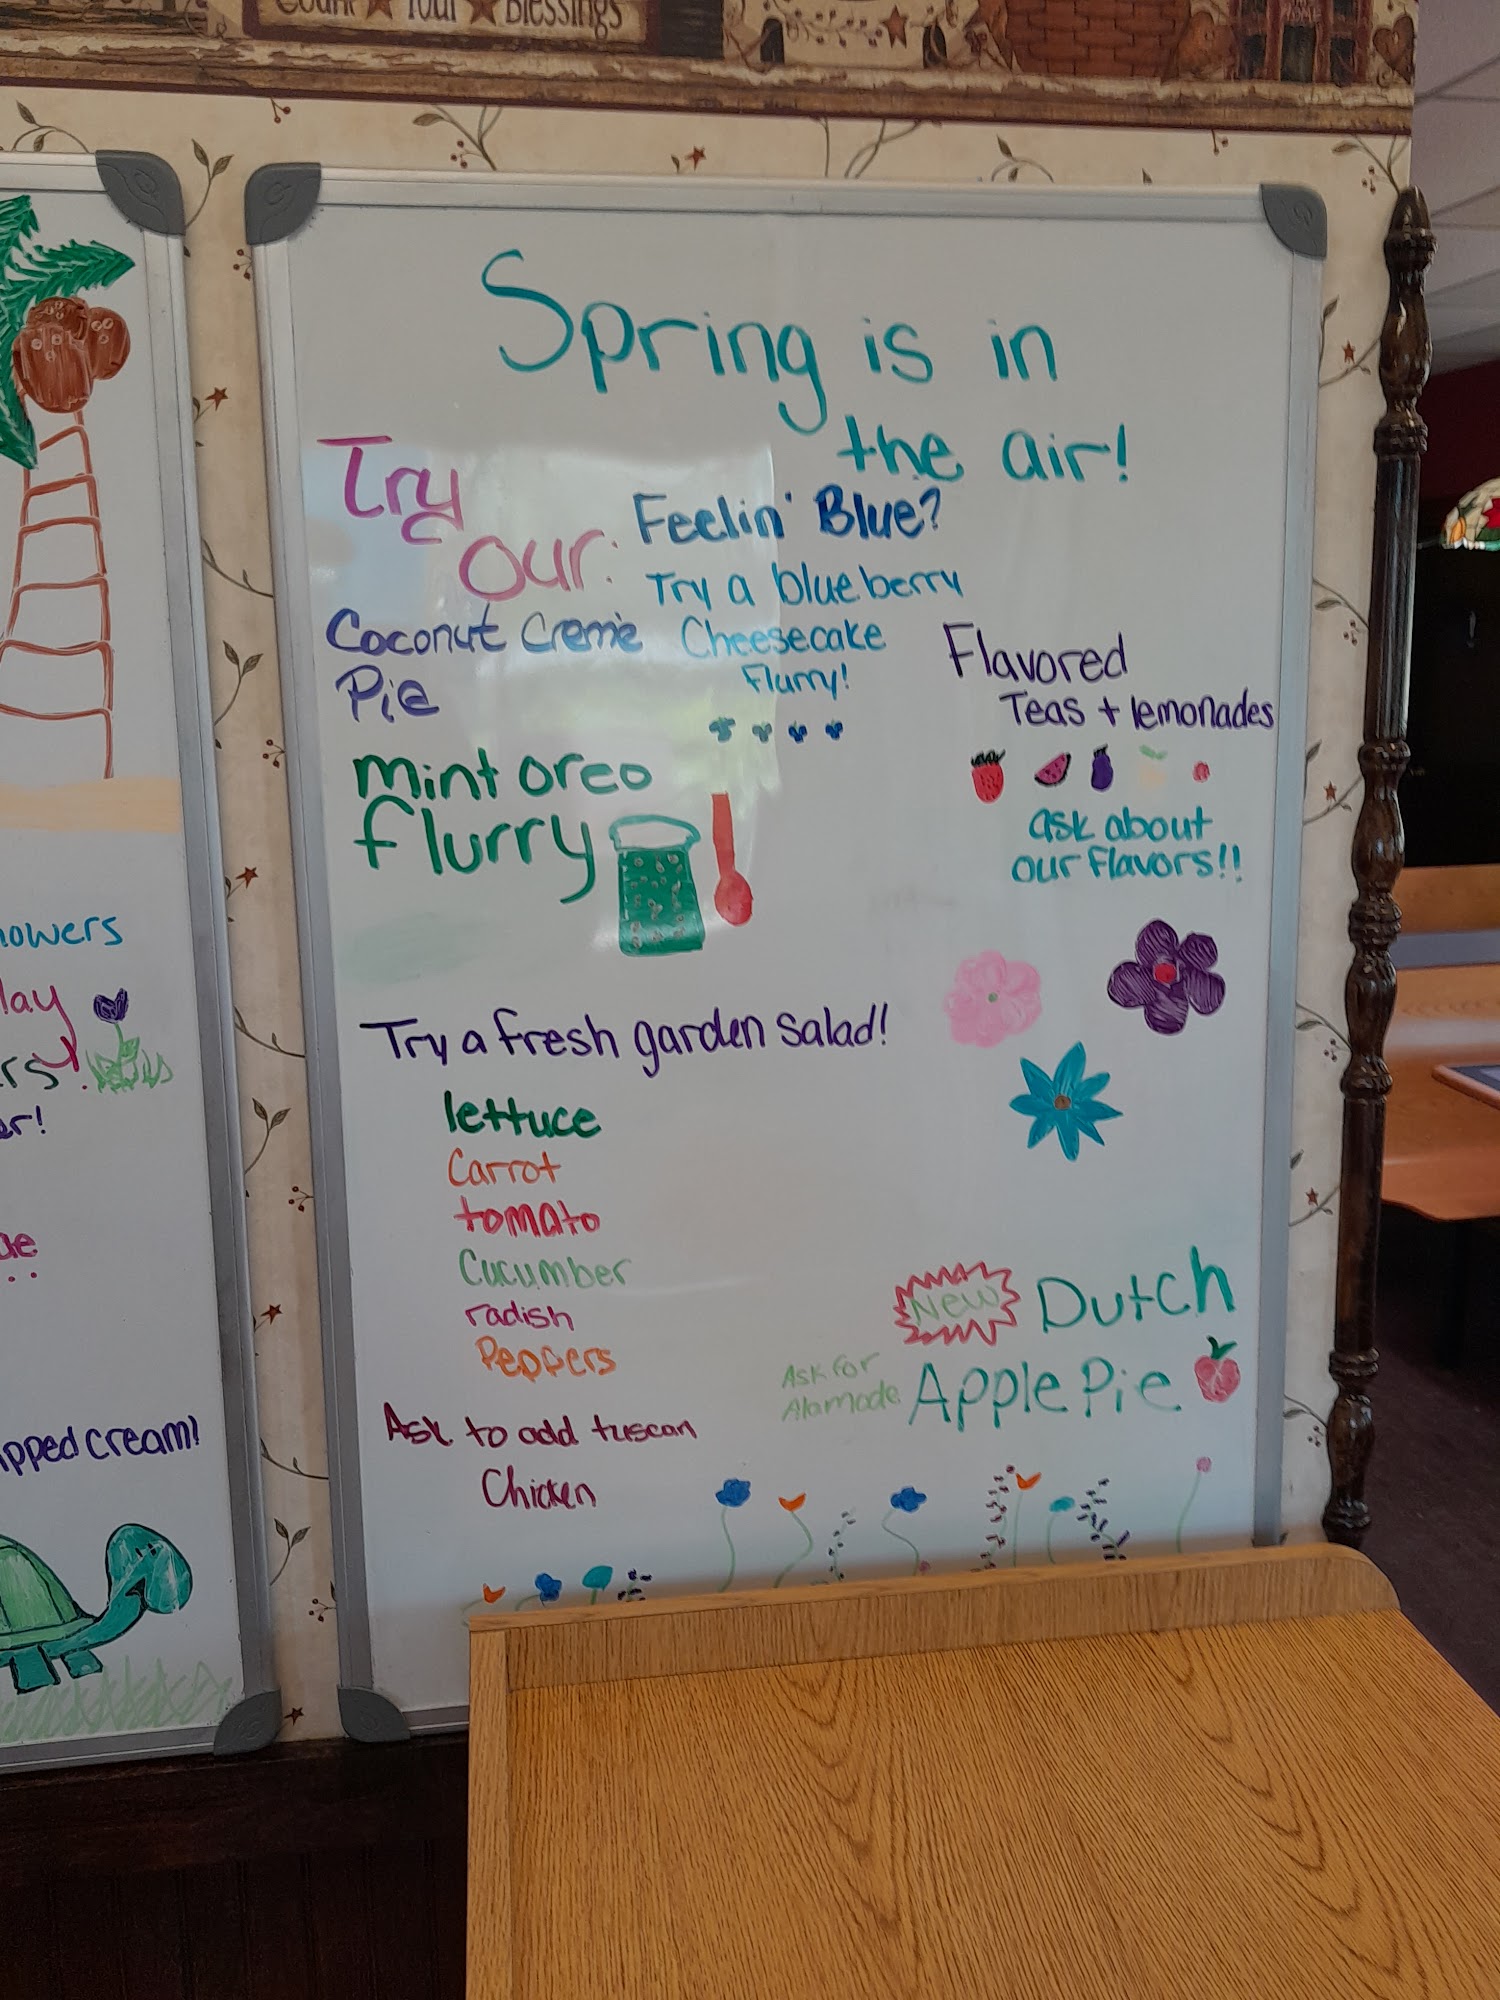 Count Your Blessings
Spring is in
the air!
Try
our:
Coconut Creme
Pie
mint oreo
flurry
Feelin' Blue?
Try a blueberry
Cheesecake
Flurry!
Flavored
Teas + lemonades
ask about
our flavors!!
Try a fresh garden salad!
lettuce
Carrot
tomato
Cucumber
radish
Peppers
Ask to add tuscan
Chicken
New Dutch
Apple Pie
Ask for
Alamode
owers
lay
rs!
er!
ae
ipped cream!